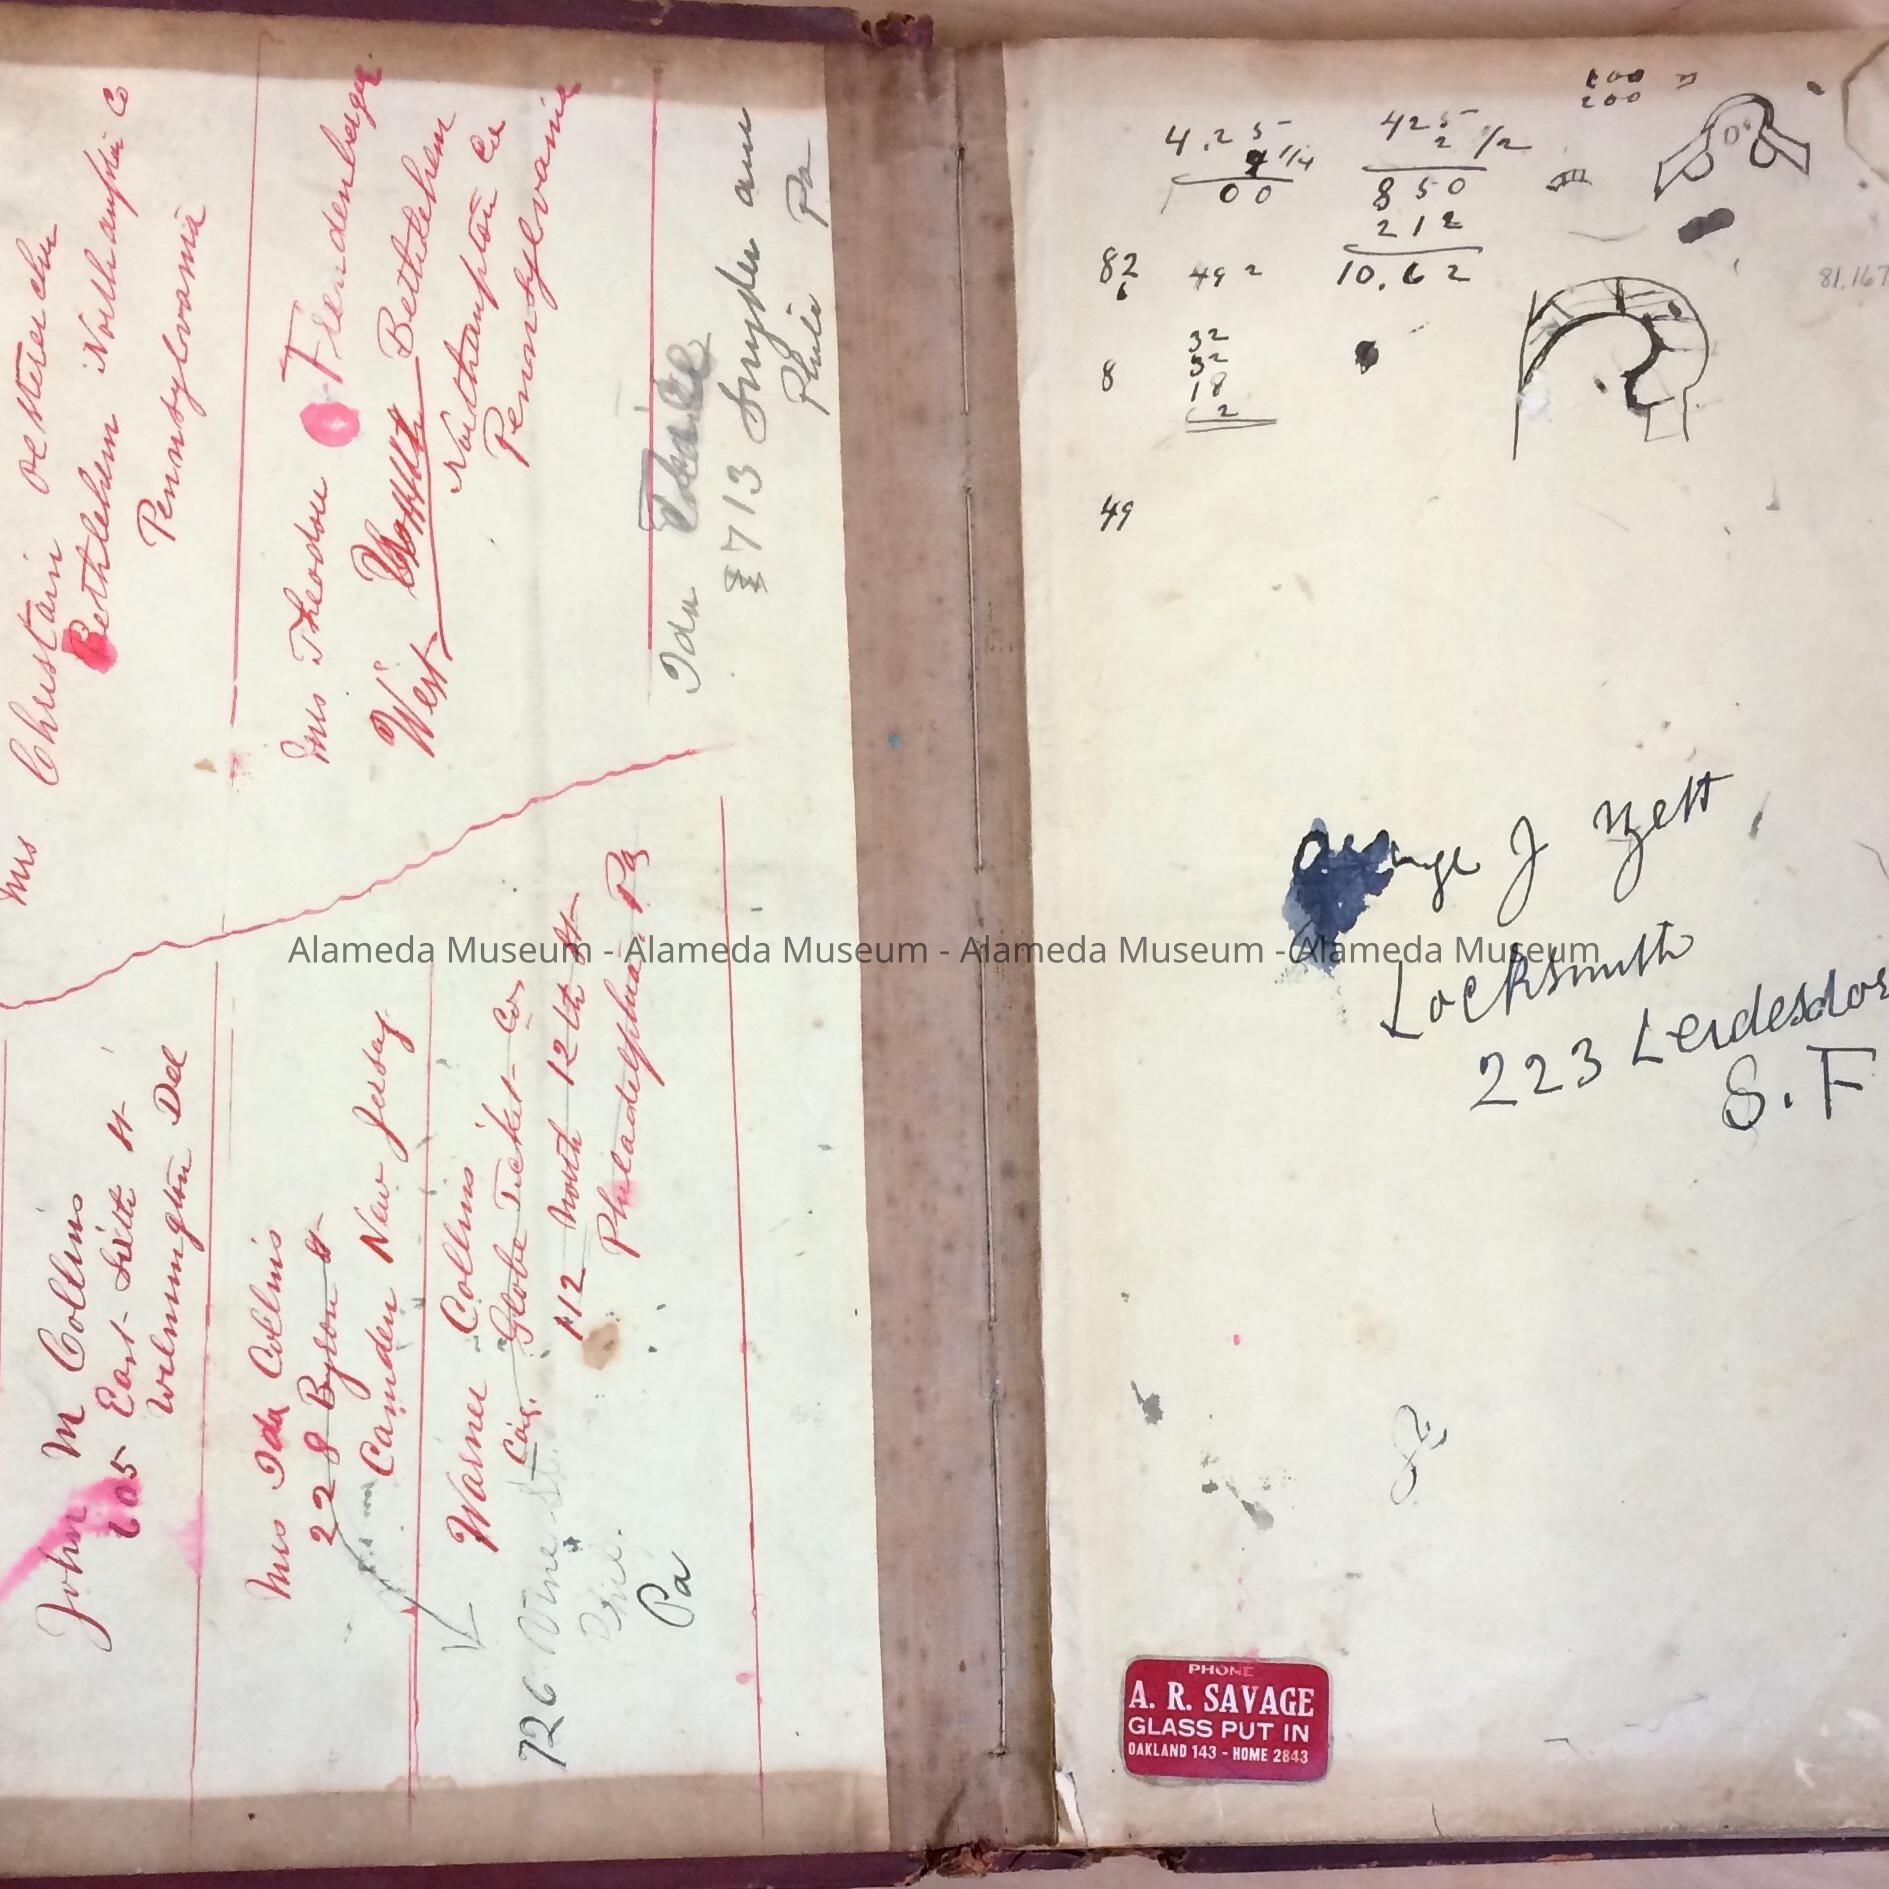 Mrs Christain Oesterecher
Bethlehem Northampton Co
Pennsylvania
Mrs Theodore Freudenberger
West Bethlehem
Northampton Co
Pennsylvania
Ida
1713 Snyder ave
Phila Pa
John M Collins
605 East Sixth St
Wilmington Del
Mrs Ida Collins
228 Byron St
Camden New Jersey
Warner Collins
Car. Globe Ticket Co
112 North 12th St
Philadelphia Pa
726 Vine St.
Phil.
Pa
100
200
4.25
1/4
00
425
2 1/2
850
212
10.62
82
6
492
32
32
18
2
8
49
81.167
George J Zett
Locksmith
223 Leidesdor
S.F
PHONE
A. R. SAVAGE
GLASS PUT IN
OAKLAND 143 - HOME 2843
Alameda Museum - Alameda Museum - Alameda Museum - Alameda Museum